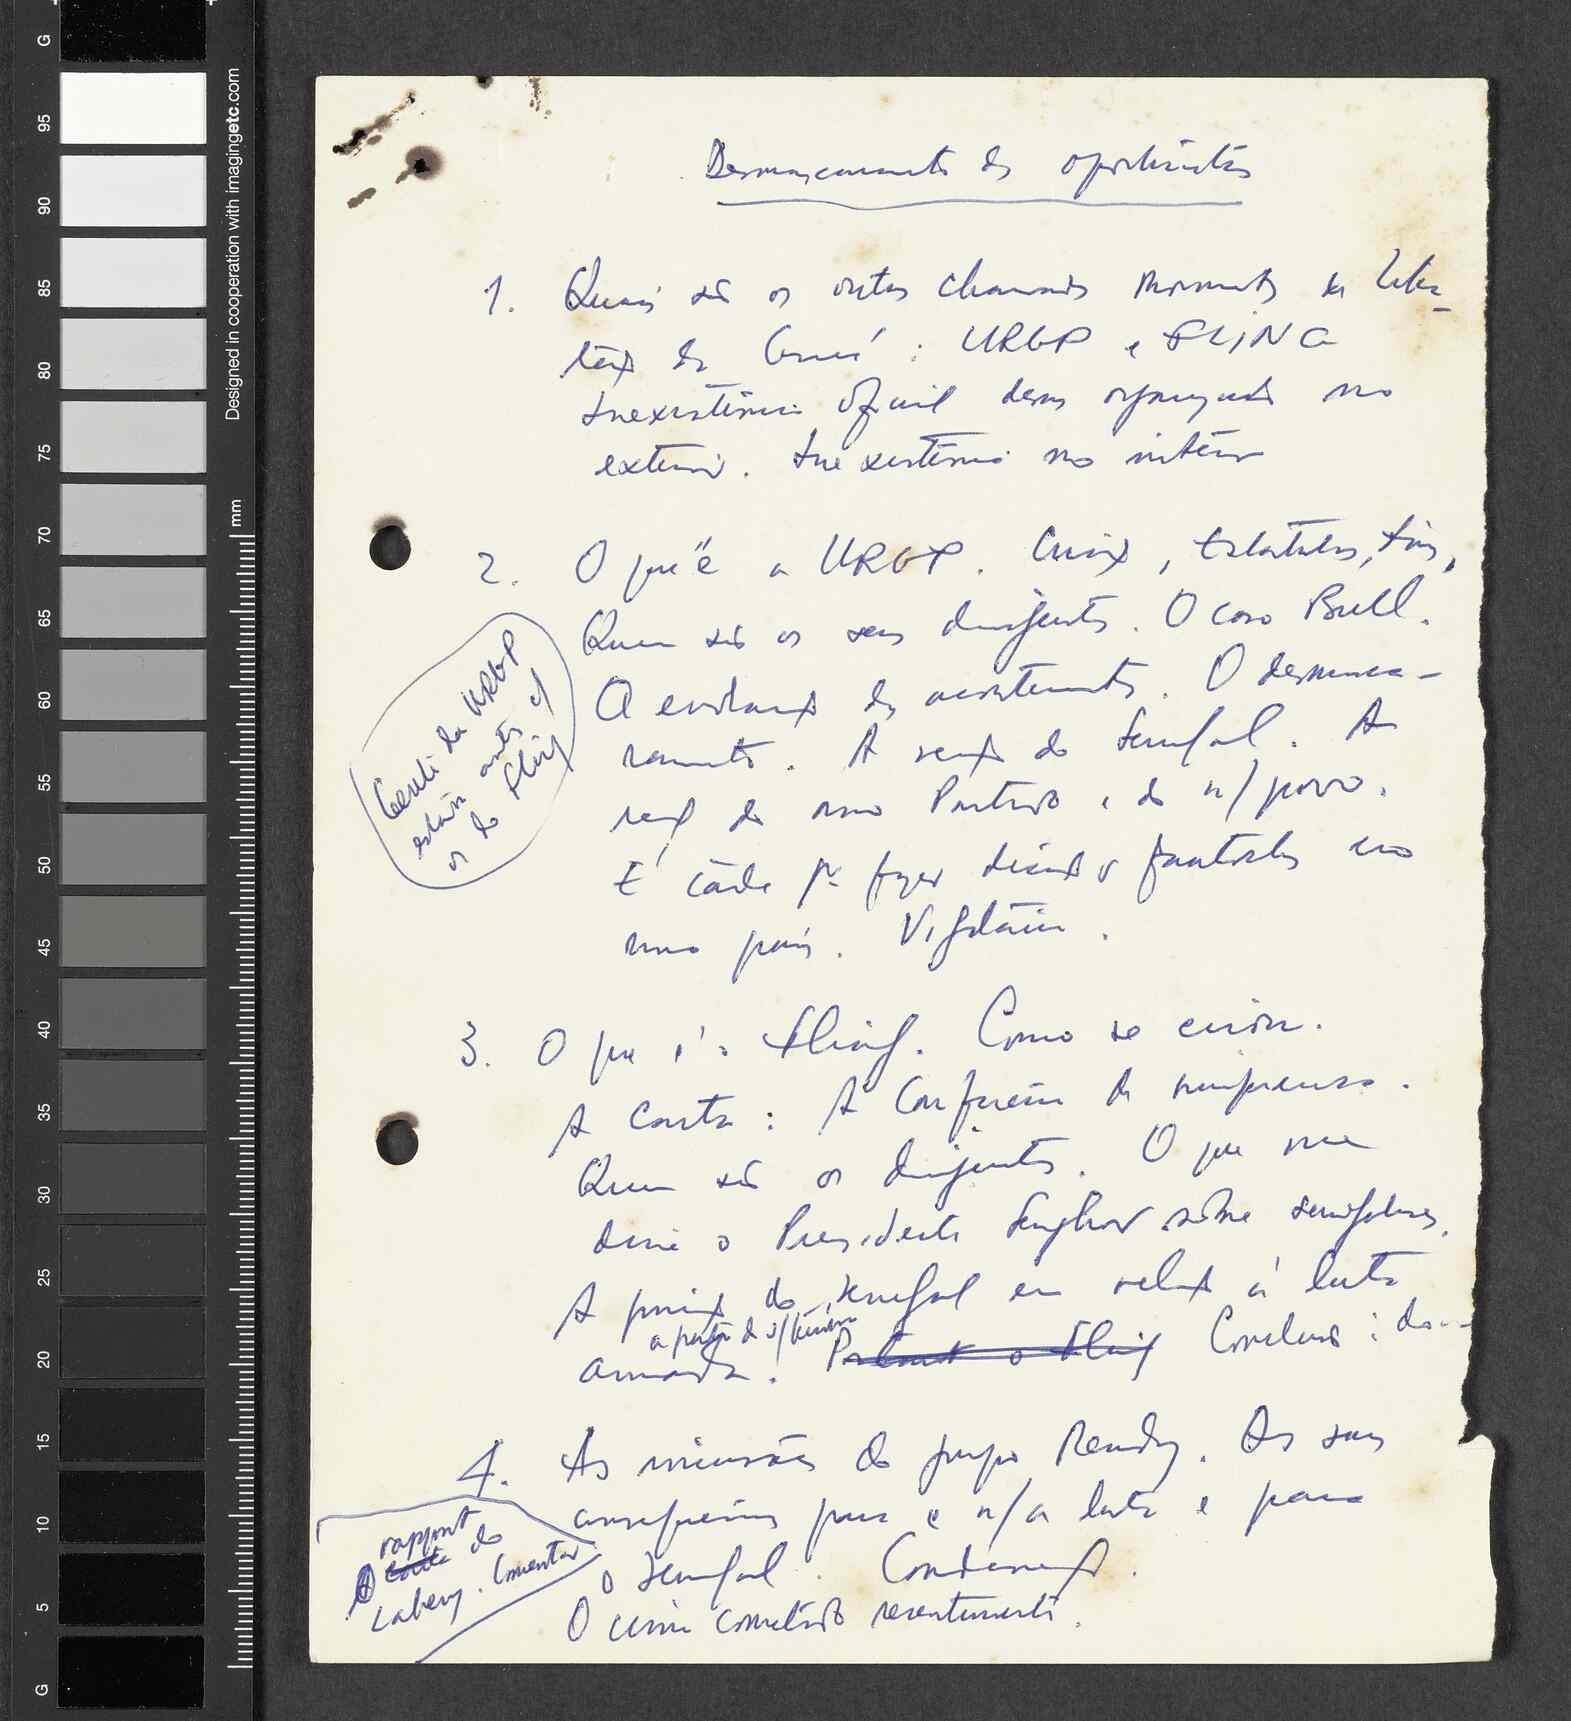 Desmascaramento dos oportunistas
1. Quais são os outros chamados movimentos de liber-
tação da Guiné: URGP e FLING
Inexistência oficial dessas organizações no
exterior. Inexistência no interior
2. O que é a URGP. Criação, Estatutos, fins,
Quem são os seus dirigentes. O caso Bull.
A evolução dos acontecimentos. O desmasca-
ramento. A reacção do Senegal. A
reacção do nosso Partido e do n/povo.
É cedo p.ª fazer
nosso país. Vigilância.
Gente da URGP
estão antes c/
os do Fling
3. O que é a Fling. Como se criou.
A Carta: A Conferência de imprensa.
Quem são os dirigentes. O que me
disse o Presidente Senghor sobre senegaleses.
A posição do Senegal em relação à luta
a partir do s/território
armada. Portanto o Fling Conclusão: do--
4. As incursões do grupo Rendy. As suas
consequências para a n/a luta e para
o Senegal. Condenação.
O crime cometido recentemente.
rapport
O do
Labery. Comentar
G
95
90
85
80
75
70
65
60
55
50
45
40
35
30
25
20
15
10
5
G
Designed in cooperation with imagingetc.com
mm